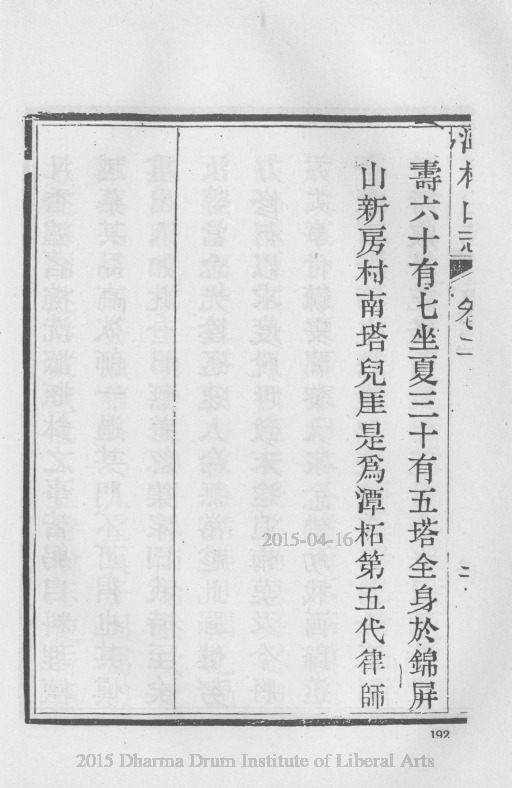 壽六十有七坐夏三十有五塔全身於錦屏
山新房村南塔兒厓是爲潭柘第五代律師
卷二
192
2015-04-16
2015 Dharma Drum Institute of Liberal Arts